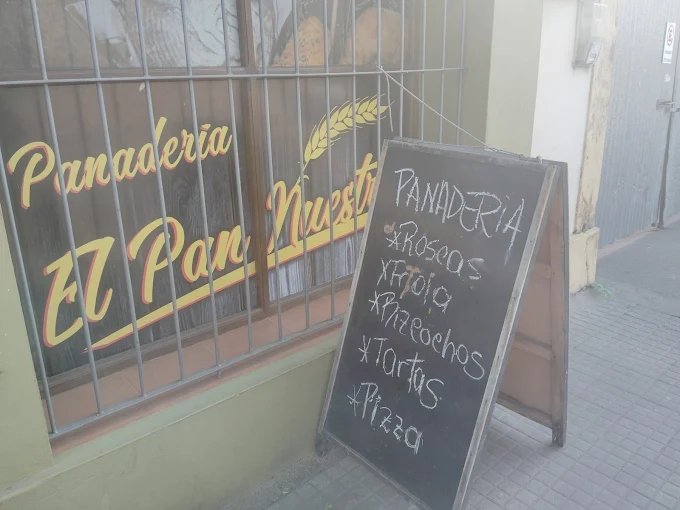 Panadería
El Pan Nuestr
PANADERiA
*Roscas
*Frola
*Bizcochos
*Tartas
*Pizza